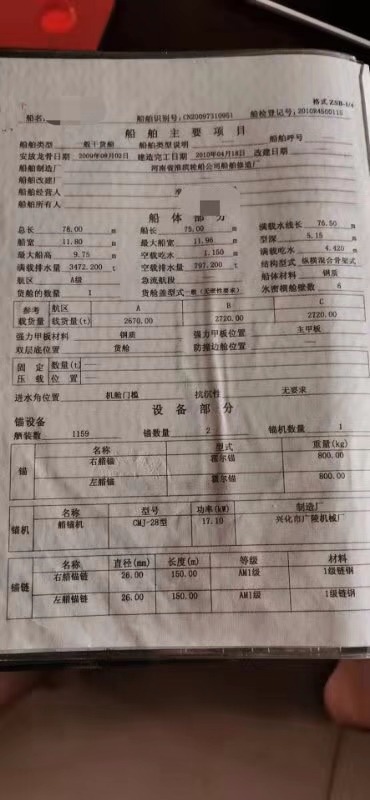 格式 ZSB-1/4
船名: 船舶识别号: CN20097310951 船检登记号: 2010R4500115
船舶主要项目
船舶类型 一般干货船 船舶类型说明 船舶呼号
安放龙骨日期 2009年09月02日 建造完工日期 2010年04月18日 改建日期
船舶制造厂 河南省淮滨船舶修造厂
船舶改建厂
船舶经营人
船舶所有人
船体部分
总长 76.00 m 船长 75.00 m 满载水线长 76.50 m
船宽 11.80 m 最大船宽 11.96 m 型深 5.15 m
最大船高 9.75 m 空载吃水 1.150 m 满载吃水 4.420 m
满载排水量 3472.200 t 空载排水量 797.200 t 结构型式 纵横混合骨架式
航区 A级 急流航段 船体材料 钢质
货舱的数量 1 货舱盖型式 一般(无密性要求) 水密横舱壁数 6
参考载货量 航区 A B C
载货量(t) 2670.00 2720.00 2720.00
强力甲板材料 钢质 强力甲板位置 主甲板
双层底位置 货舱 防撞边舱位置
固定压载 数量(t)
位置
进水角位置 机舱门槛 抗沉性 无要求
设备部分
锚设备
舾装数 1159 锚数量 2 锚机数量 1
锚 名称 型式 重量(kg)
右艏锚 霍尔锚 800.00
左艏锚 霍尔锚 800.00
锚机 名称 型号 功率(kW) 制造厂
艏锚机 CMJ-28型 17.10 兴化市广陵机械厂
锚链 名称 直径(mm) 长度(m) 等级 材料
右艏锚链 26.00 150.00 AM1级 1级链钢
左艏锚链 26.00 150.00 AM1级 1级链钢